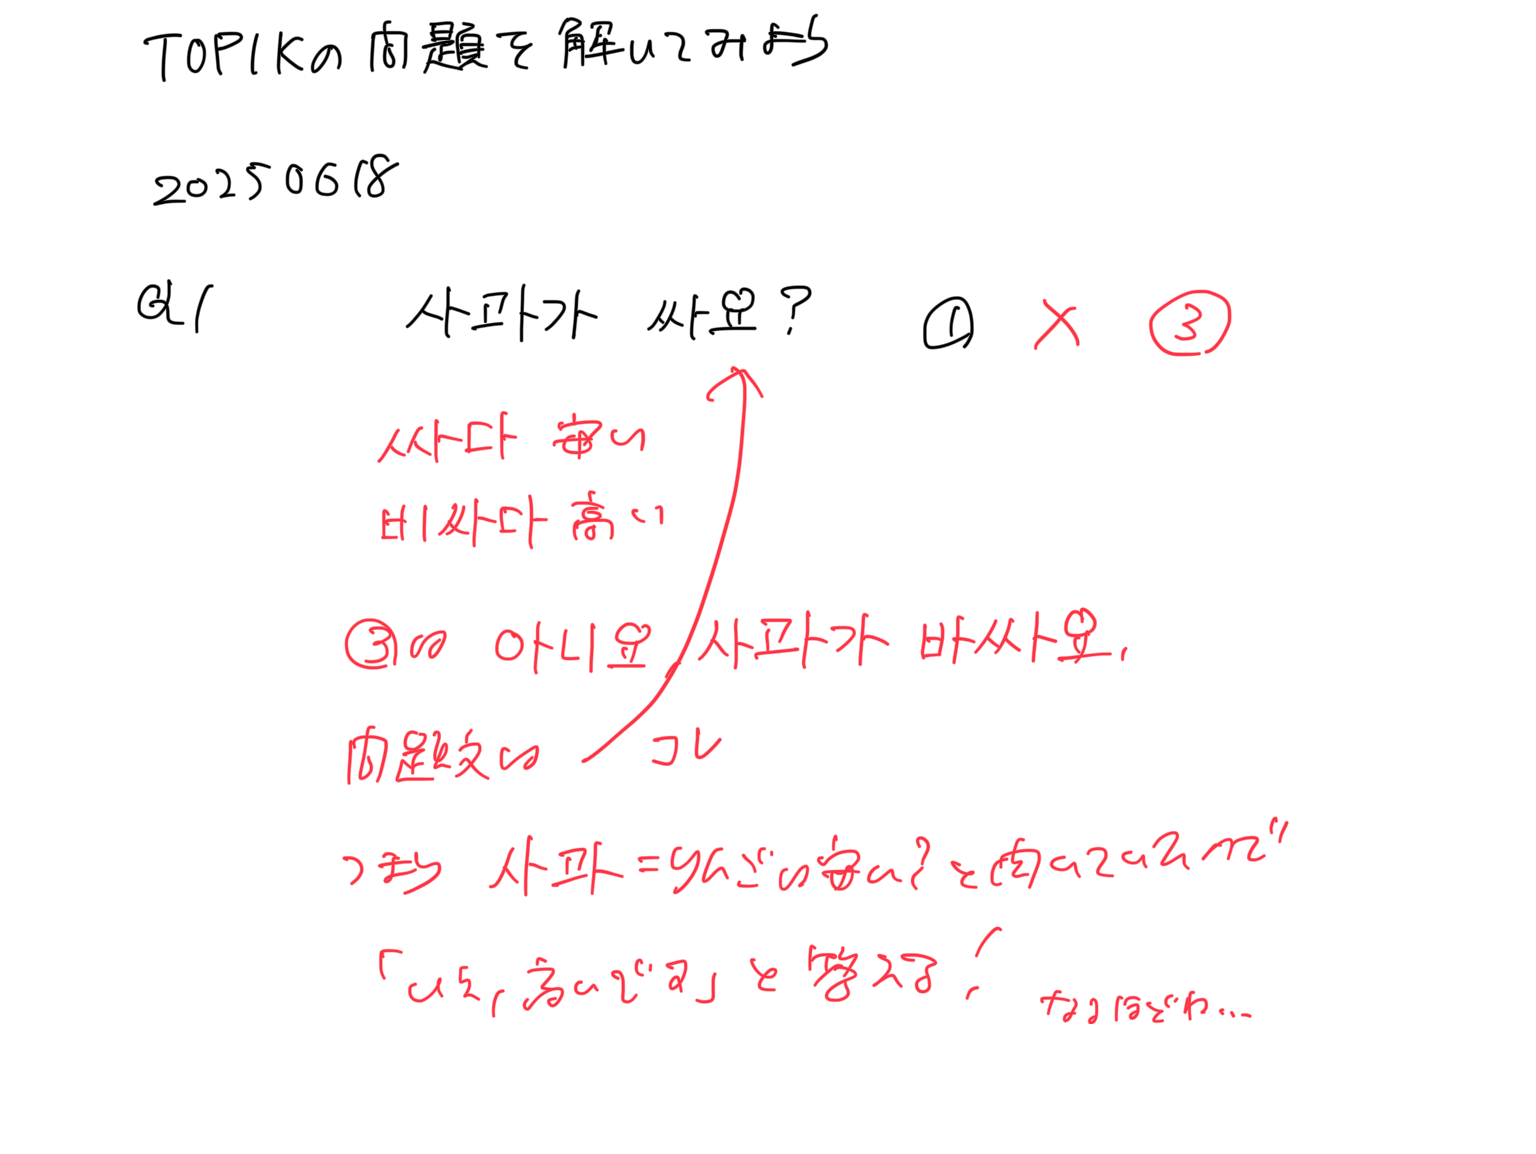 TOPIKの問題を解いてみよう
20250618
Q1 사과가 싸요? ① × ③
싸다 安い
비싸다 高い
③の 아니요 사과가 바싸요.
問題文の コレ
つまり 사과=りんごの安い?と聞いているので
「いえ,高いです」と答える!
なるほどね...